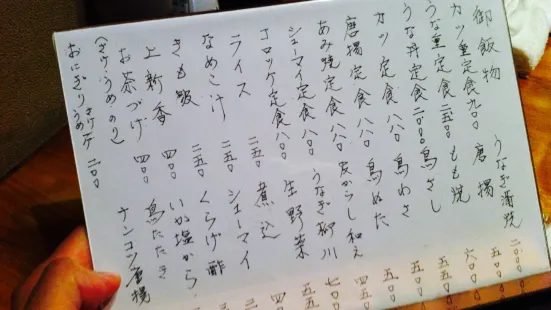 御飯物
カツ重定食 九〇〇
うな重定食 二五〇〇
うな丼定食 二〇〇〇
カツ定食 八〇〇
唐揚定食 八〇〇
あみ焼定食 八〇〇
シューマイ定食 八〇〇
コロッケ定食 八〇〇
ライス 二五〇
なめこ汁 二五〇
きも吸 二五〇
上新香 四〇〇
お茶づけ 四〇〇
(さけ、うめ、のり)
おにぎり さけ うめ 一ケ 二〇〇
うなぎ蒲焼 二〇〇〇
唐揚 六〇〇
もも焼
鳥さし 五五〇
鳥わさ 五五〇
鳥ぬた
皮からし和え 四五〇
うなぎ柳川 七〇〇
生野菜
煮込
シューマイ
くらげ酢
いか塩から
鳥たたき
ナンコツ唐揚